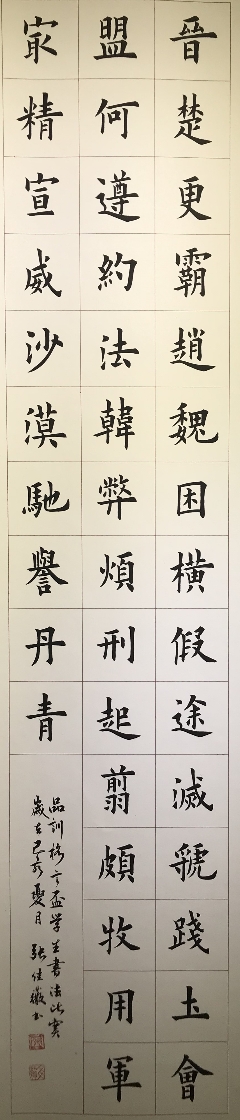 晉楚更霸趙魏困橫假途滅虢踐土會
盟何遵約法韓弊煩刑起翦頗牧用軍
宼精宣威沙漠馳譽丹青
品訓格言盃学生書法比賽
歲在己亥夏月 張佳